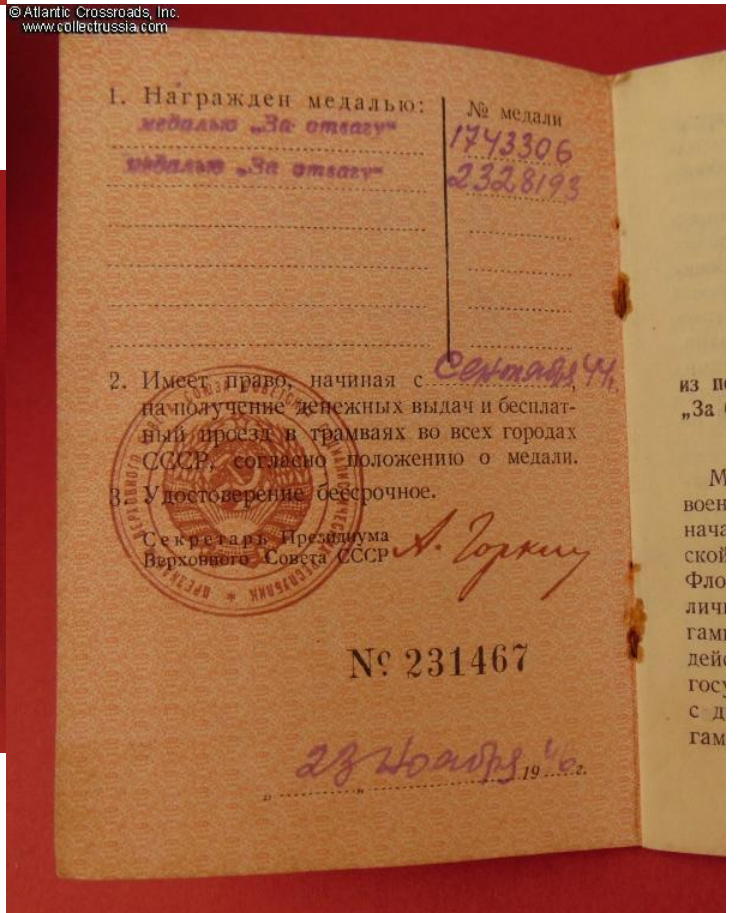 © Atlantic Crossroads, Inc.
www.collectrussia.com
1. Награжден медалью: № медали
медалью „За отвагу“ 1743306
медалью „За отвагу“ 2328193
2. Имеет право, начиная с Сентября 44 г.,
на получение денежных выдач и бесплат-
ный проезд в трамваях во всех городах
СССР, согласно положению о медали.
3. Удостоверение бессрочное.
Секретарь Президиума
Верховного Совета СССР А. Горкин
№ 231467
„23 Ноября 1946 г.
из
„За
М
воен
нача
ской
Фло
личн
гами
дейс
госу
с д
гам